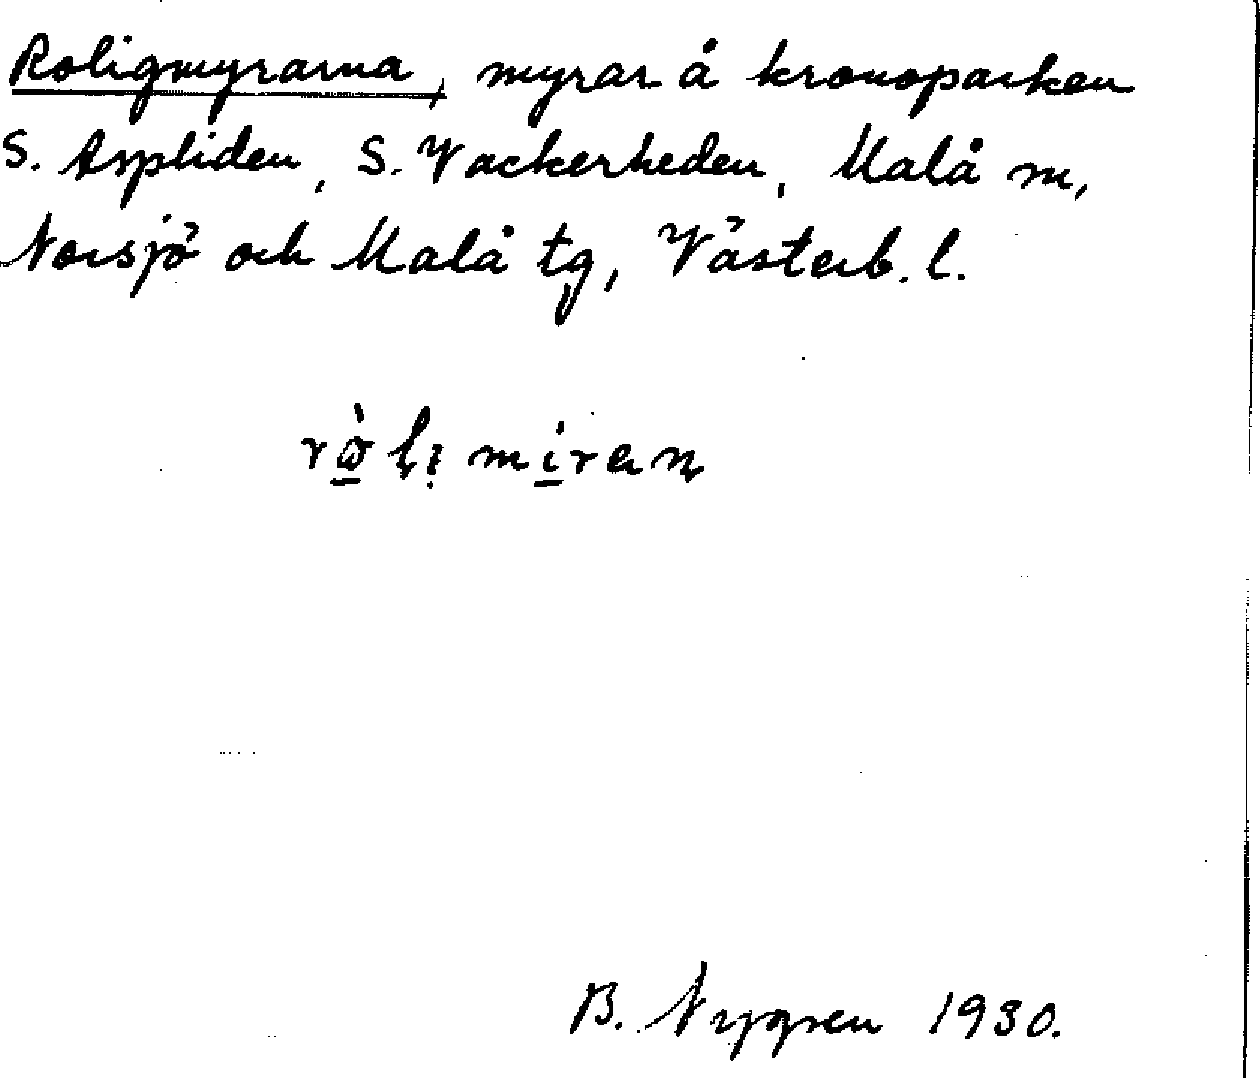 Roligmyrarna, myrar å kronoparken
S. Aspliden, S. Vackerheden, Malå m,
Norsjö och Malå tg, Västerb. l.
B. Nygren 1930.